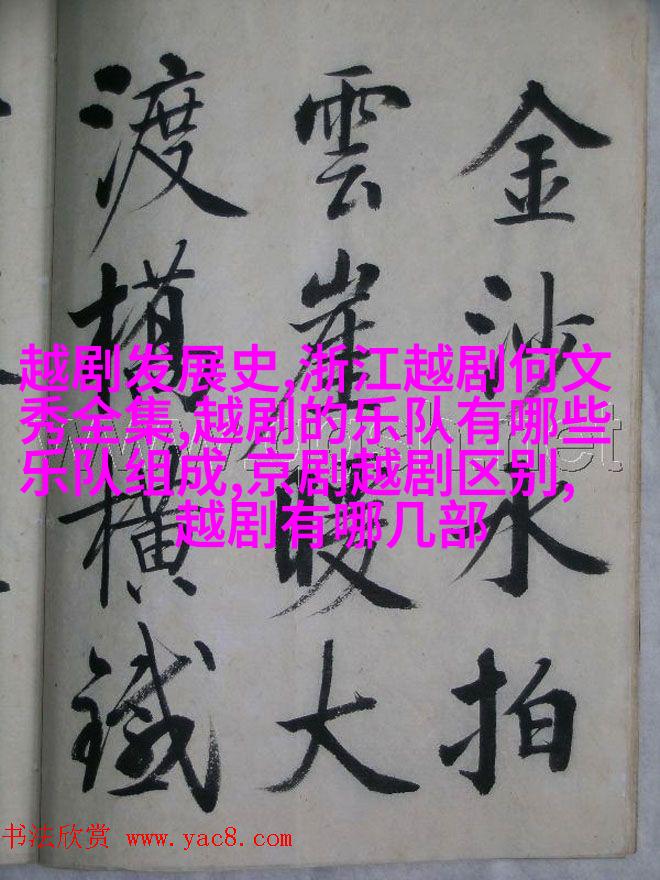 金沙水拍
雲崖暖大
渡橋横鐵
越剧发展史,浙江越剧何文
秀全集,越剧的乐队有哪些
乐队组成,京剧越剧区别,
越剧有哪几部
书法欣赏 www.yac8.com